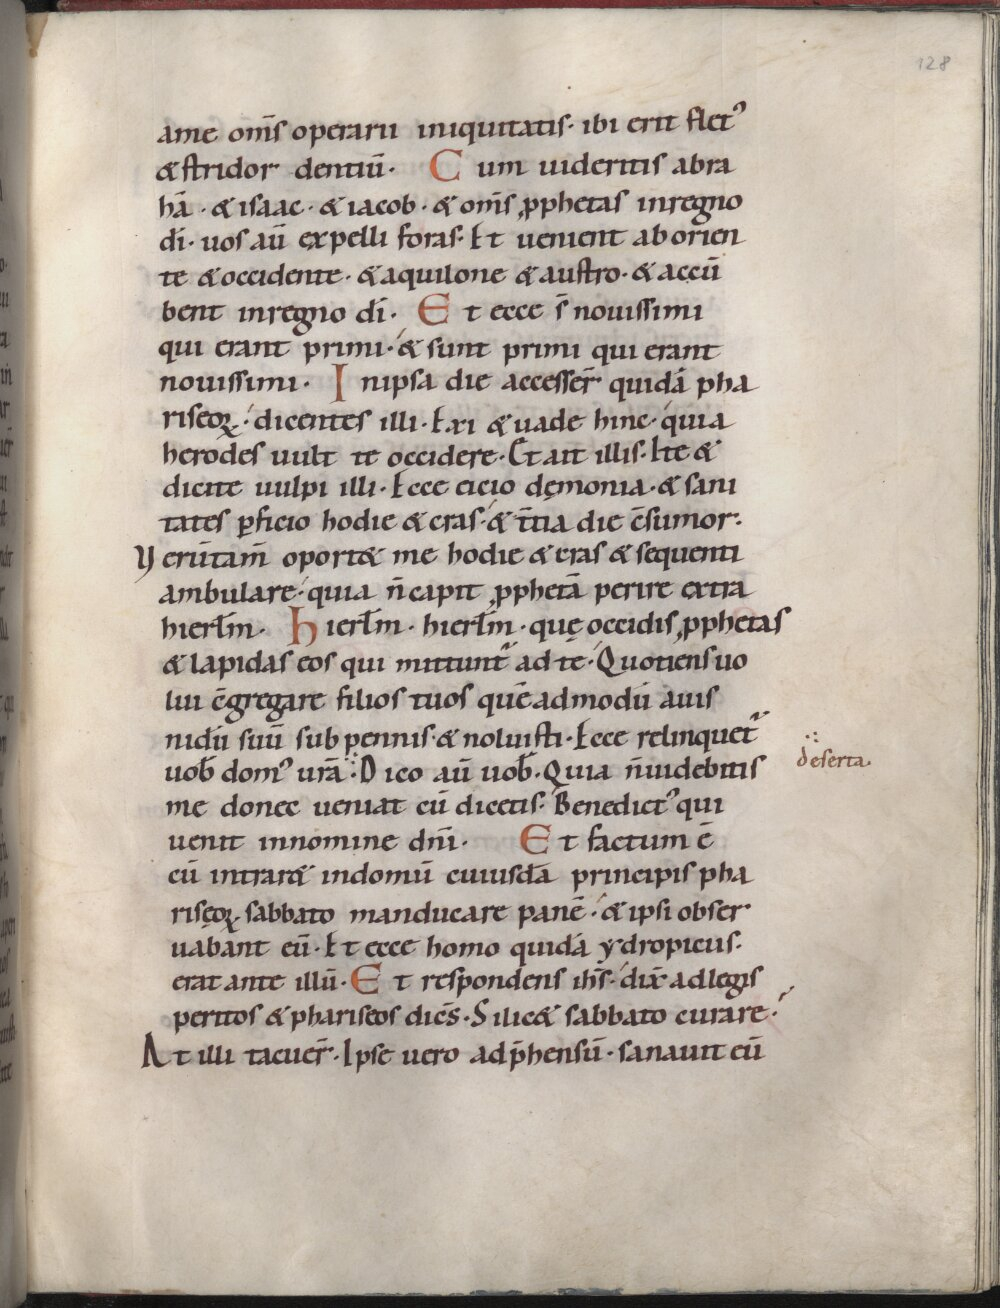 128
ame om̄s operarii iniquitatis· ibi erit flet᾽
&stridor dentiū· Cum uideritis abra
hā· & isaac· & iacob· & om̄s ꝓphetas inregno
dī· uos aū expelli foras· Et uenient ab orien
te & occidente· & aquilone & austro· & accū
bent inregno dī· Et ecce s̄ nouissimi
qui erant primi· & sunt primi qui erant
nouissimi· Inipsa die accesser̄ quidā pha
riseoꝝ· dicentes illi· Exi & uade hinc· quia
herodes uult te occidere· Et ait illis· Ite &
dicite uulpi illi· Ecce eicio dęmonia· & sani
tates ꝑficio hodie & cras· & t̄tia die c̄sumor·
Verūtam̄ oport& me hodie & cras & sequenti
ambulare· quia n̄ capit ꝓphetā perire extra
hierl̄m· hierl̄m· hierl̄m· quę occidis ꝓphetas
& lapidas eos qui mittunt᷑ ad te· Quotiens uo
lui c̄gregare filios tuos quēadmodū auis
nidū suū sub pennis· & noluisti· Ecce relinquet᷑
uob̄ dom᾽ urā· Dico aū uob̄· Quia n̄uidebitis
deserta·
me donec ueniat cū dicetis· Benedict᾽ qui
uenit innomine dn̄i· Et factum ē
cū intrar& indomū cuiusdā principis pha
riseoꝝ sabbato manducare panē· & ipsi obser
uabant eū· Et ecce homo quidā ydropicus·
erat ante illū· Et respondens ih̄s· dix̄ adlegis
peritos & phariseos dic̄s· Si lic& sabbato curare·
At illi tacuer̄· Ipse uero adp̄hensū· sanauit eū